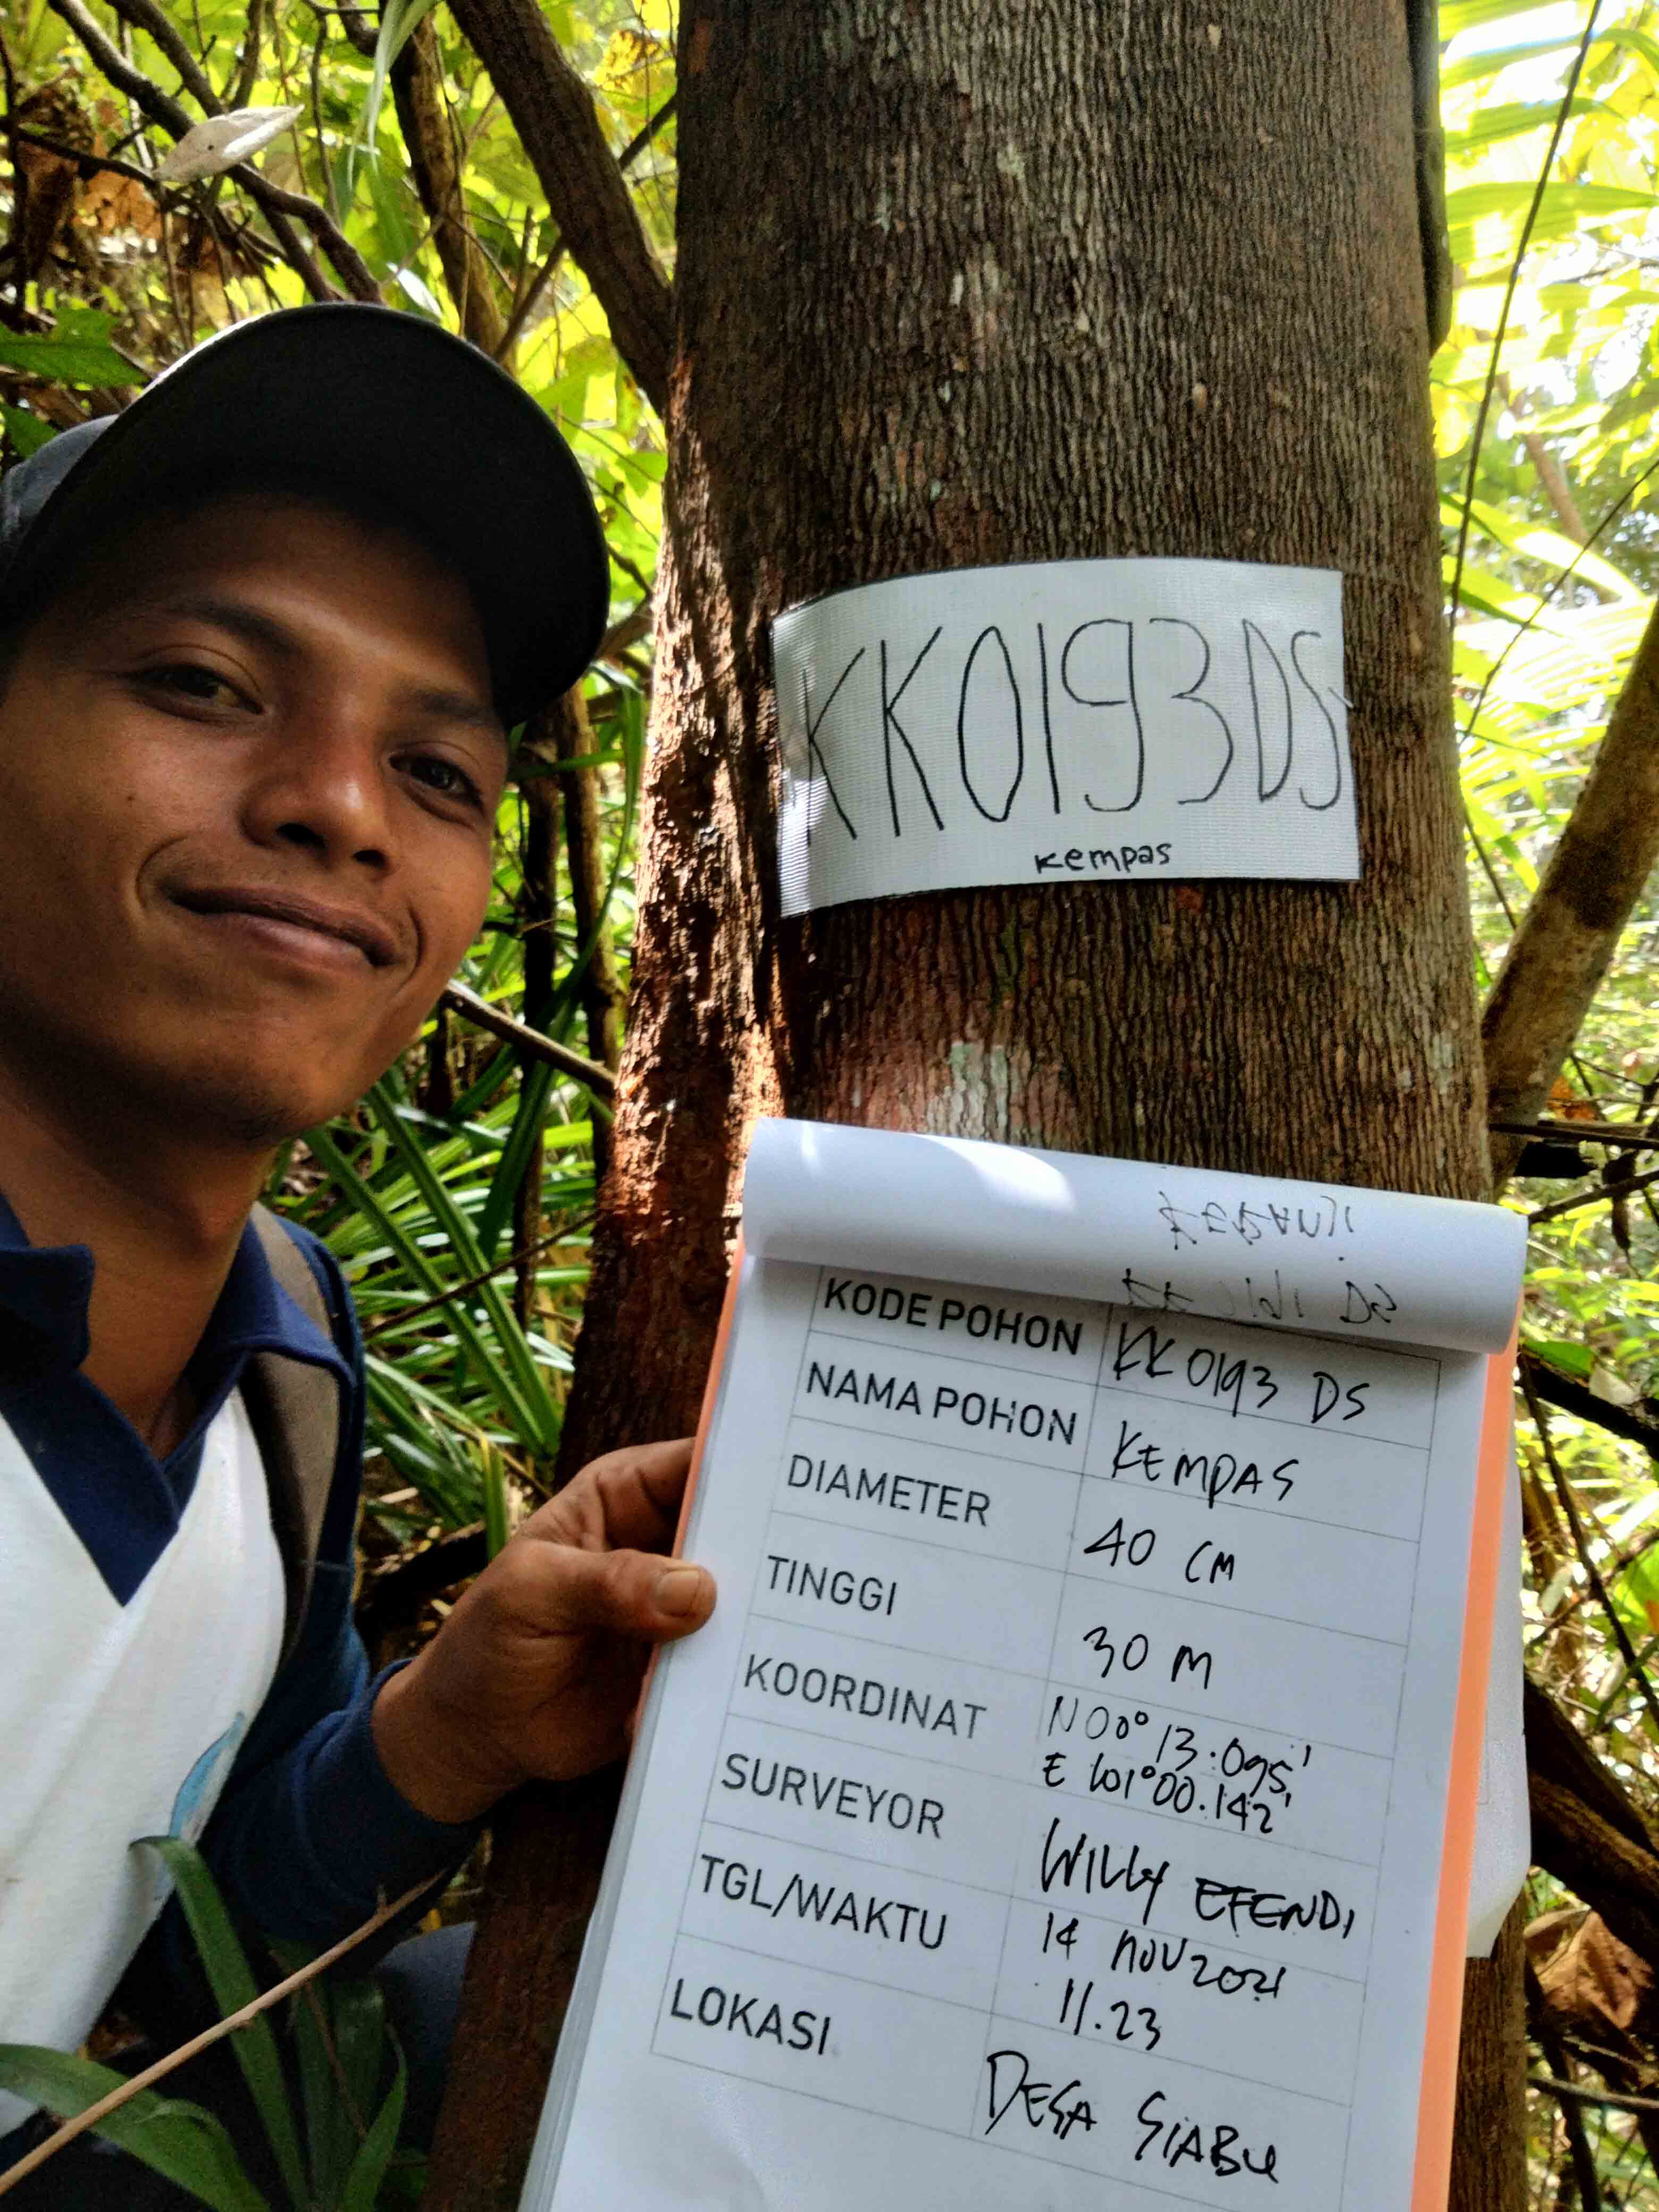 KK0193DS
Kempas
KEBANJI
KODE POHON KK0193 DS
NAMA POHON KEMPAS
DIAMETER 40 CM
TINGGI 30 M
KOORDINAT N 00° 13.095'
E 101°00.142'
SURVEYOR WILLY EFENDI
TGL/WAKTU 14 NOV 2021
11.23
LOKASI DESA SIABU